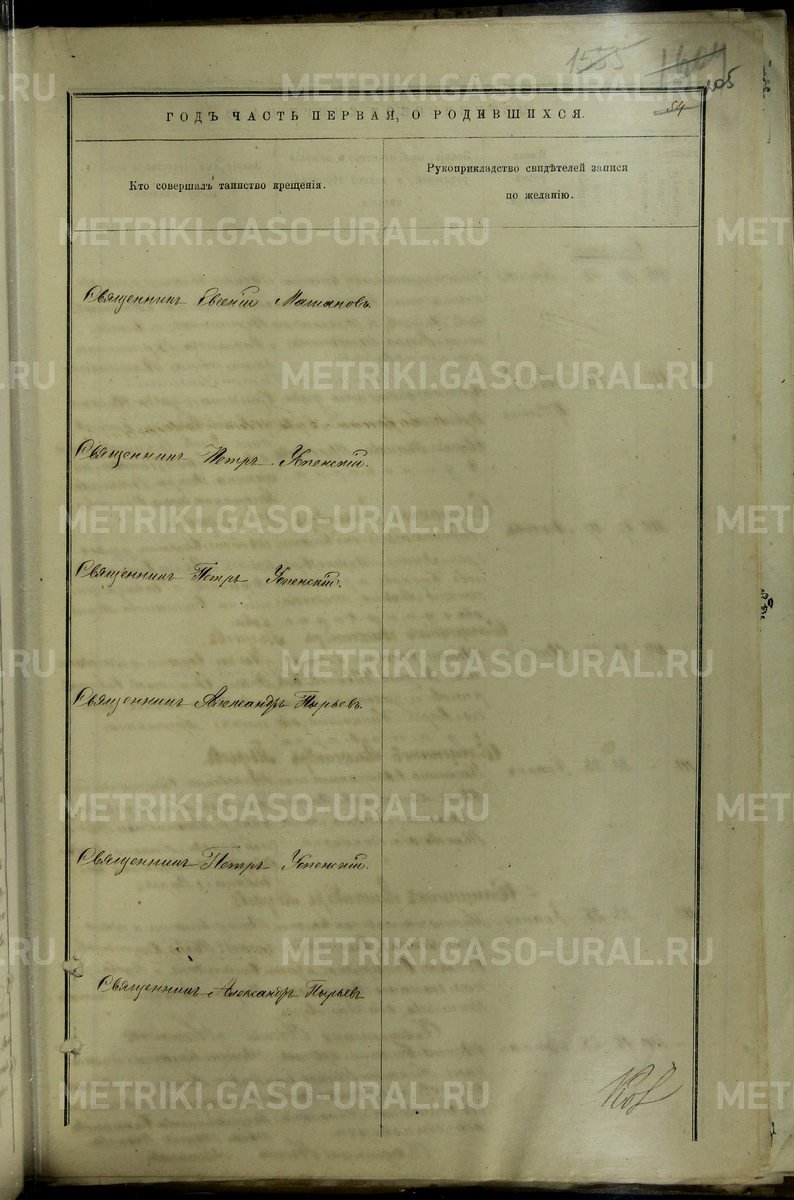 1535
105
54
ГОДЪ ЧАСТЬ ПЕРВАЯ, О РОДИВШИХСЯ.
Кто совершалъ таинство крещенія.
Рукоприкладство свидѣтелей записи
по желанію.
Священникъ Евгеній Матановъ.
Священникъ Петръ Успенскій.
Священникъ Петръ Успенскій.
Священникъ Александръ Пырьевъ.
Священникъ Петръ Успенскій.
Священникъ Александръ Пырьевъ
METRIKI.GASO-URAL.RU